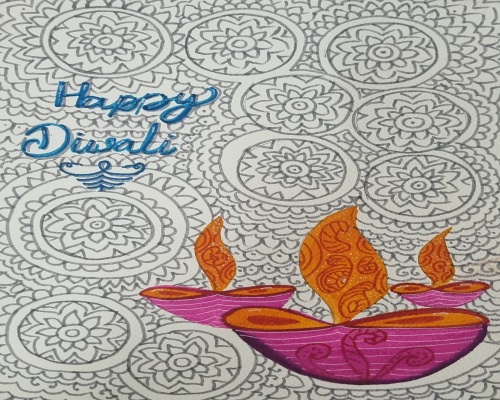 Happy
Diwali